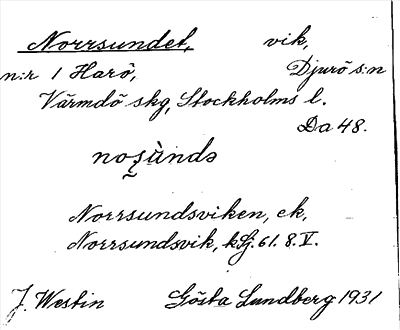 Norrsundet, vik,
n:r 1 Harö, Djurö s:n
Värmdö skg, Stockholms l.
Da 48.
noşùndə
Norrsundsviken, ek,
Norrsundsvik, kSj. 61. 8. V.
J. Westin Gösta Lundberg 1931